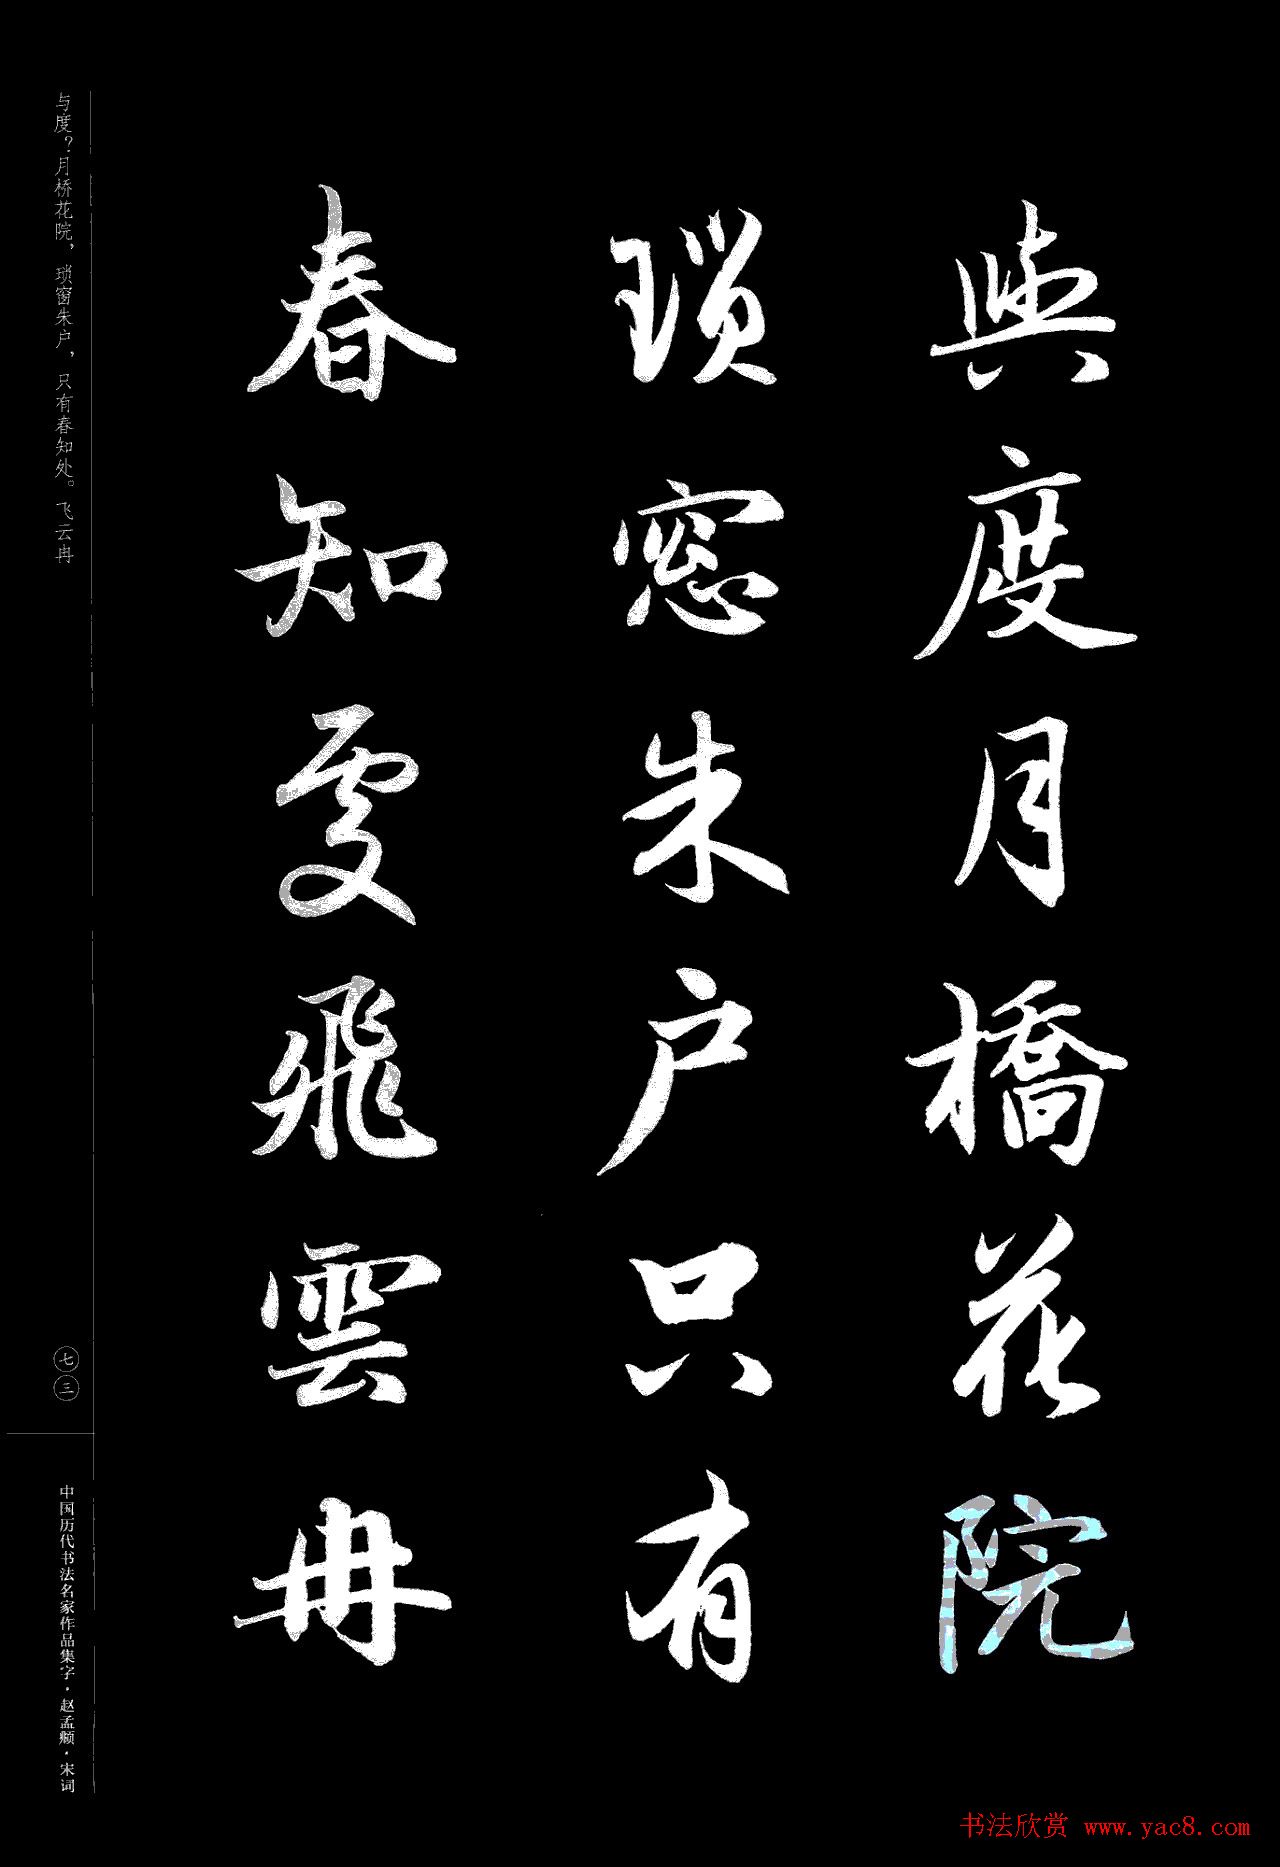 與度月橋花院
瑣窓朱户只有
春知處飛雲冉
与度？月桥花院，琐窗朱户，只有春知处。飞云冉
七三
中国历代书法名家作品集字·赵孟頫·宋词
书法欣赏 www.yac8.com